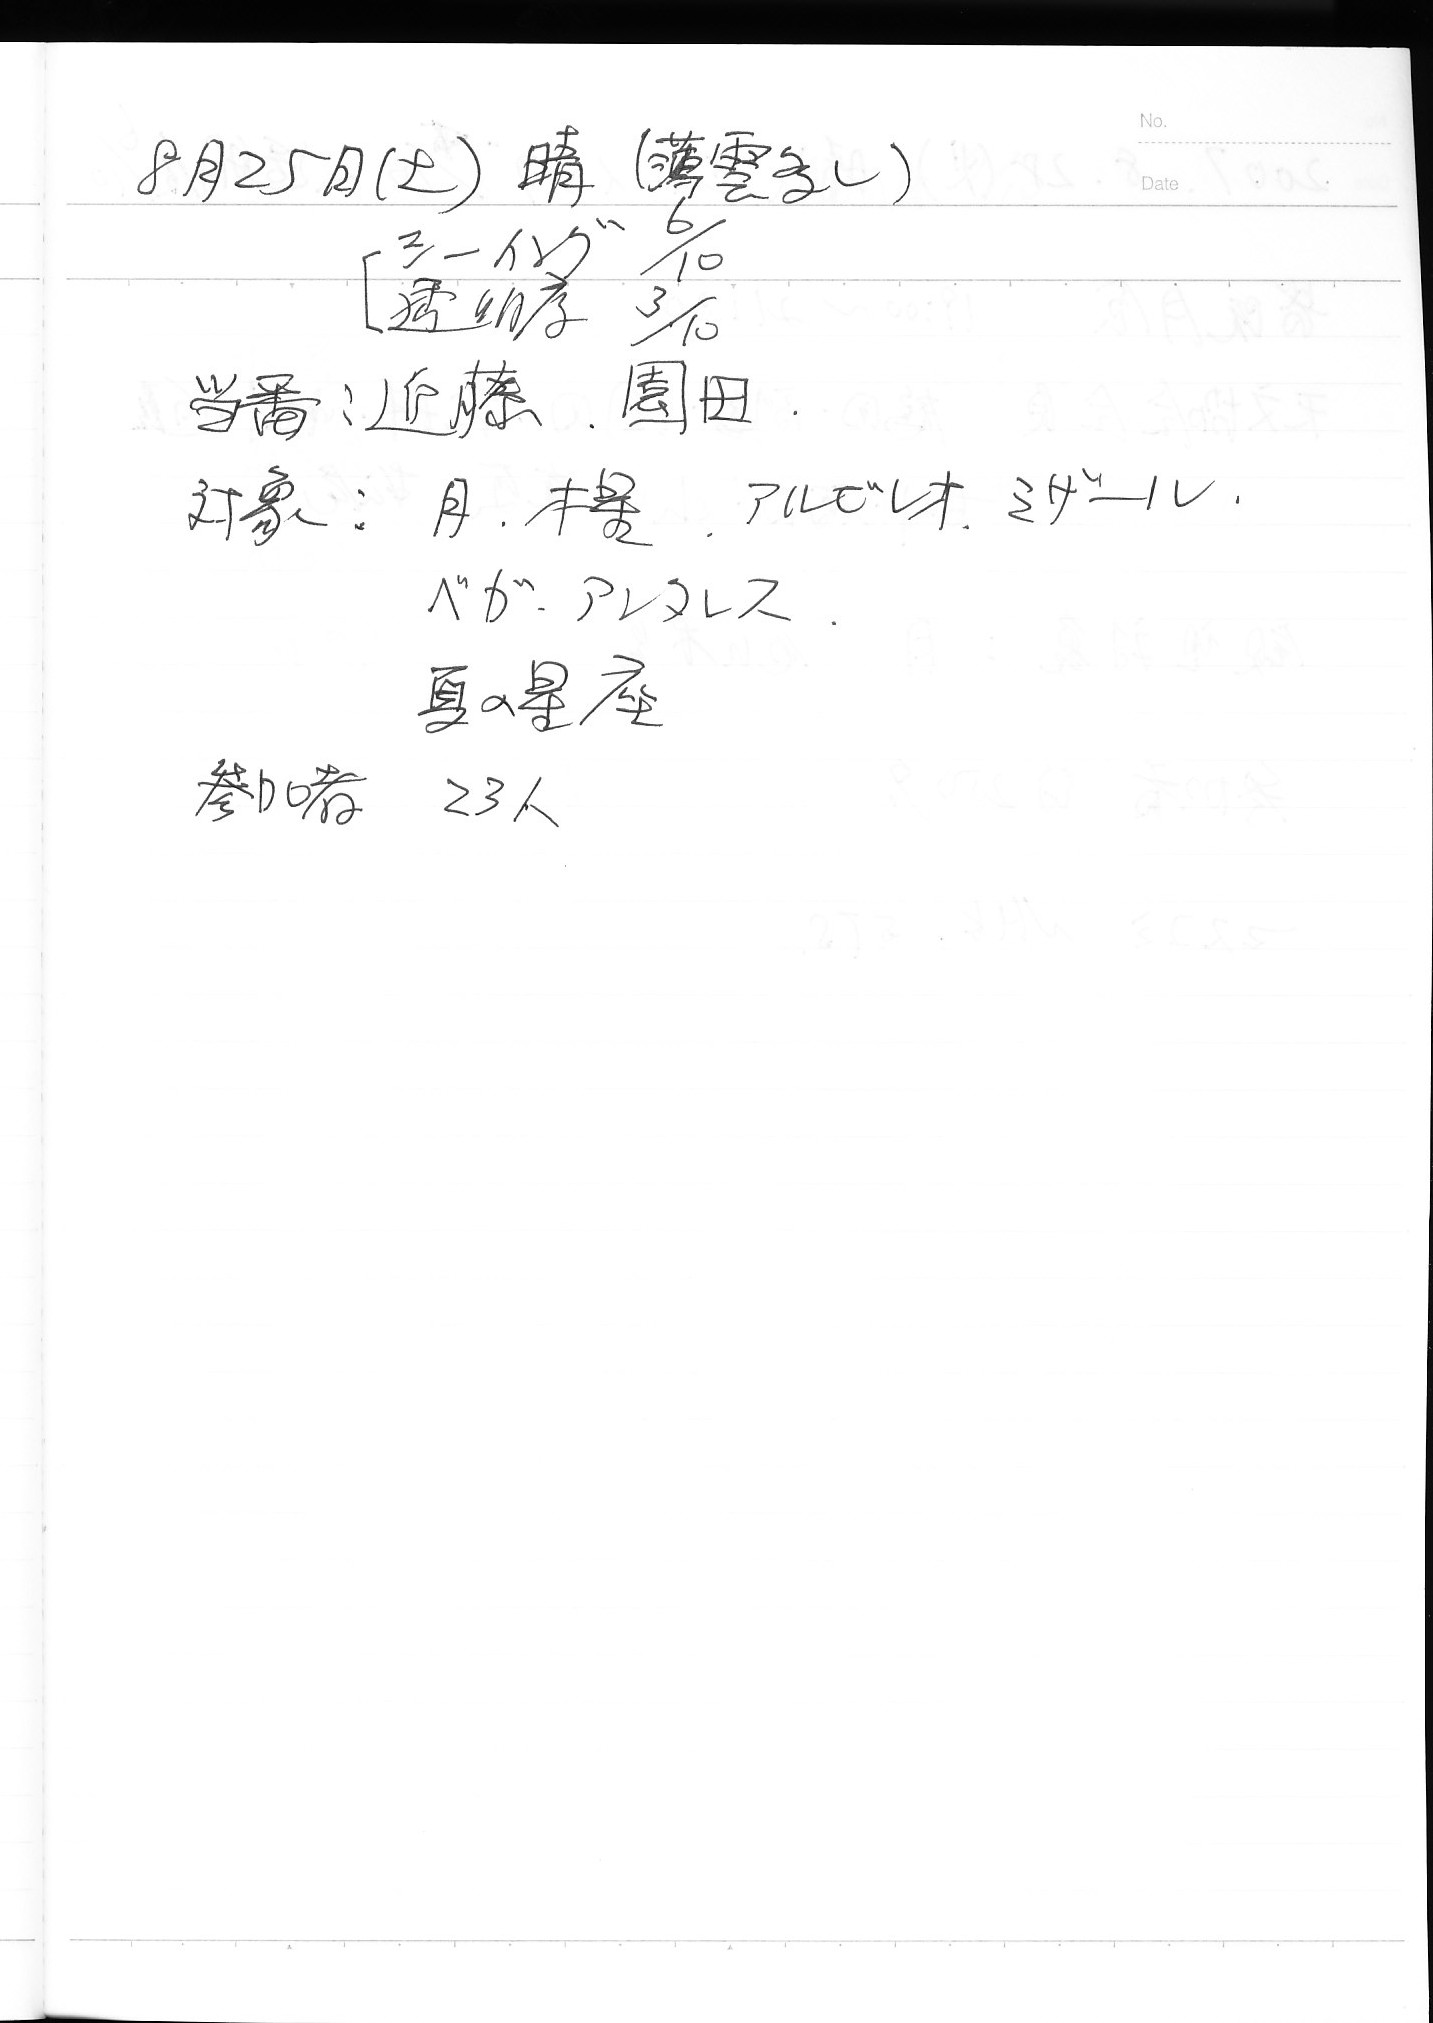 No.
Date
8月25日(土) 晴 (薄雲多し)
シーイング 6/10
透明度 3/10
当番:近藤.園田.
対象: 月.木星.アルビレオ.ミザール.
ベガ.アンタレス.
夏の星座
参加者 23人